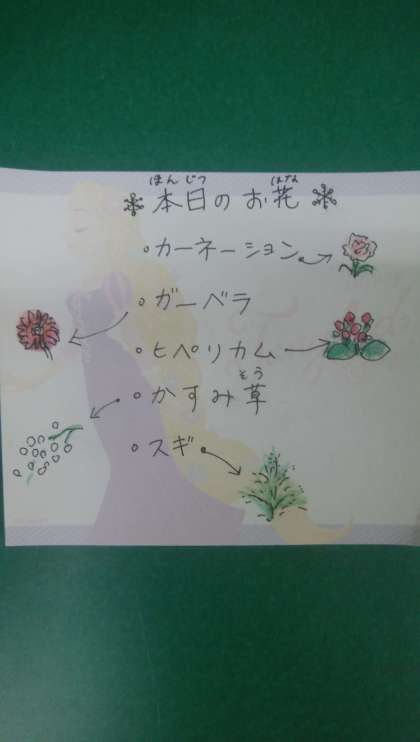 ほんじつ はな
本日のお花
・カーネーション
・ガーベラ
・ヒペリカム
そう
・かすみ草
・スギ